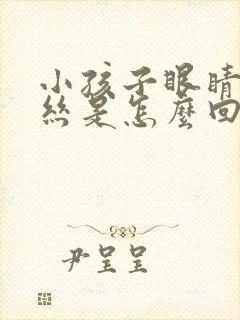 小孩子眼睛
絲是怎麼回
尹呈呈